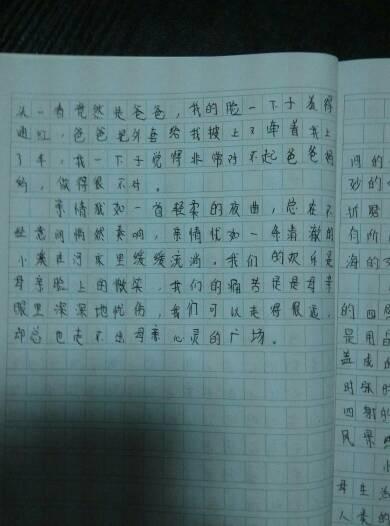 头一看竟然是爸爸，我的脸一下子羞得
通红，爸爸把外套给我披上了牵着我上
了车，我一下子觉得非常对不起爸爸妈
妈，做得很不对。
亲情犹如一首轻柔的夜曲，总在不
经意间悄然奏响，亲情犹如一条清澈的
小溪在河床里缓缓流淌。我们的欢乐是
母亲脸上的微笑，我们的痛苦是母亲
眼里深深地忧伤，我们可以走得很远，
却总也走不出母亲心灵的广场。
间的
妙的
折
有所
海的
的四
是用
盖成
时
四
风景
母生
人类的